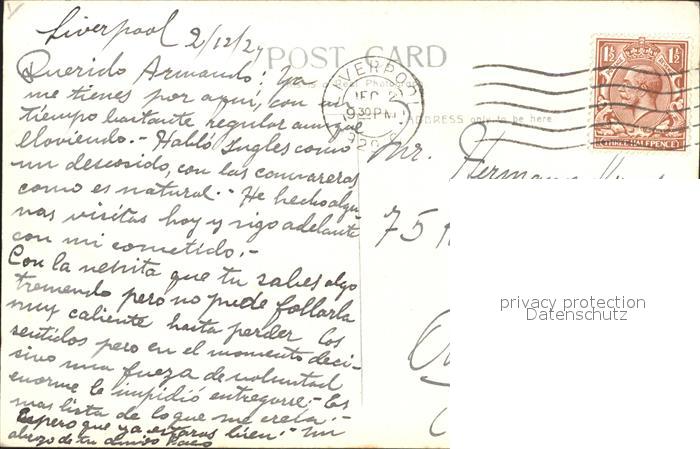 Liverpool 2/12/2
POST CARD
Querido Armando: Ya
me tienes por aquí, con un
tiempo bastante regular aunque
lloviendo.- Hablo Ingles como
un descosido, con las camareras
como es natural.- He hecho algu-
nas visitas hoy y sigo adelante
con mi cometido.-
Con la nenita que tu sabes algo
tremendo pero no pude follarla
muy caliente hasta perder los
sentidos pero en el momento deci-
sivo una fuerza de voluntad
enorme le impidió entregarse.- Es
mas lista de lo que me creía.-
Espero que ya estaras bien.- Un
abrazo de tu amigo Paco
LIVERPOOL
DEC
9 30 PM
ADDRESS only to be here
1½ 1½
THREE HALFPENCE
Mr.
75
privacy protection
Datenschutz